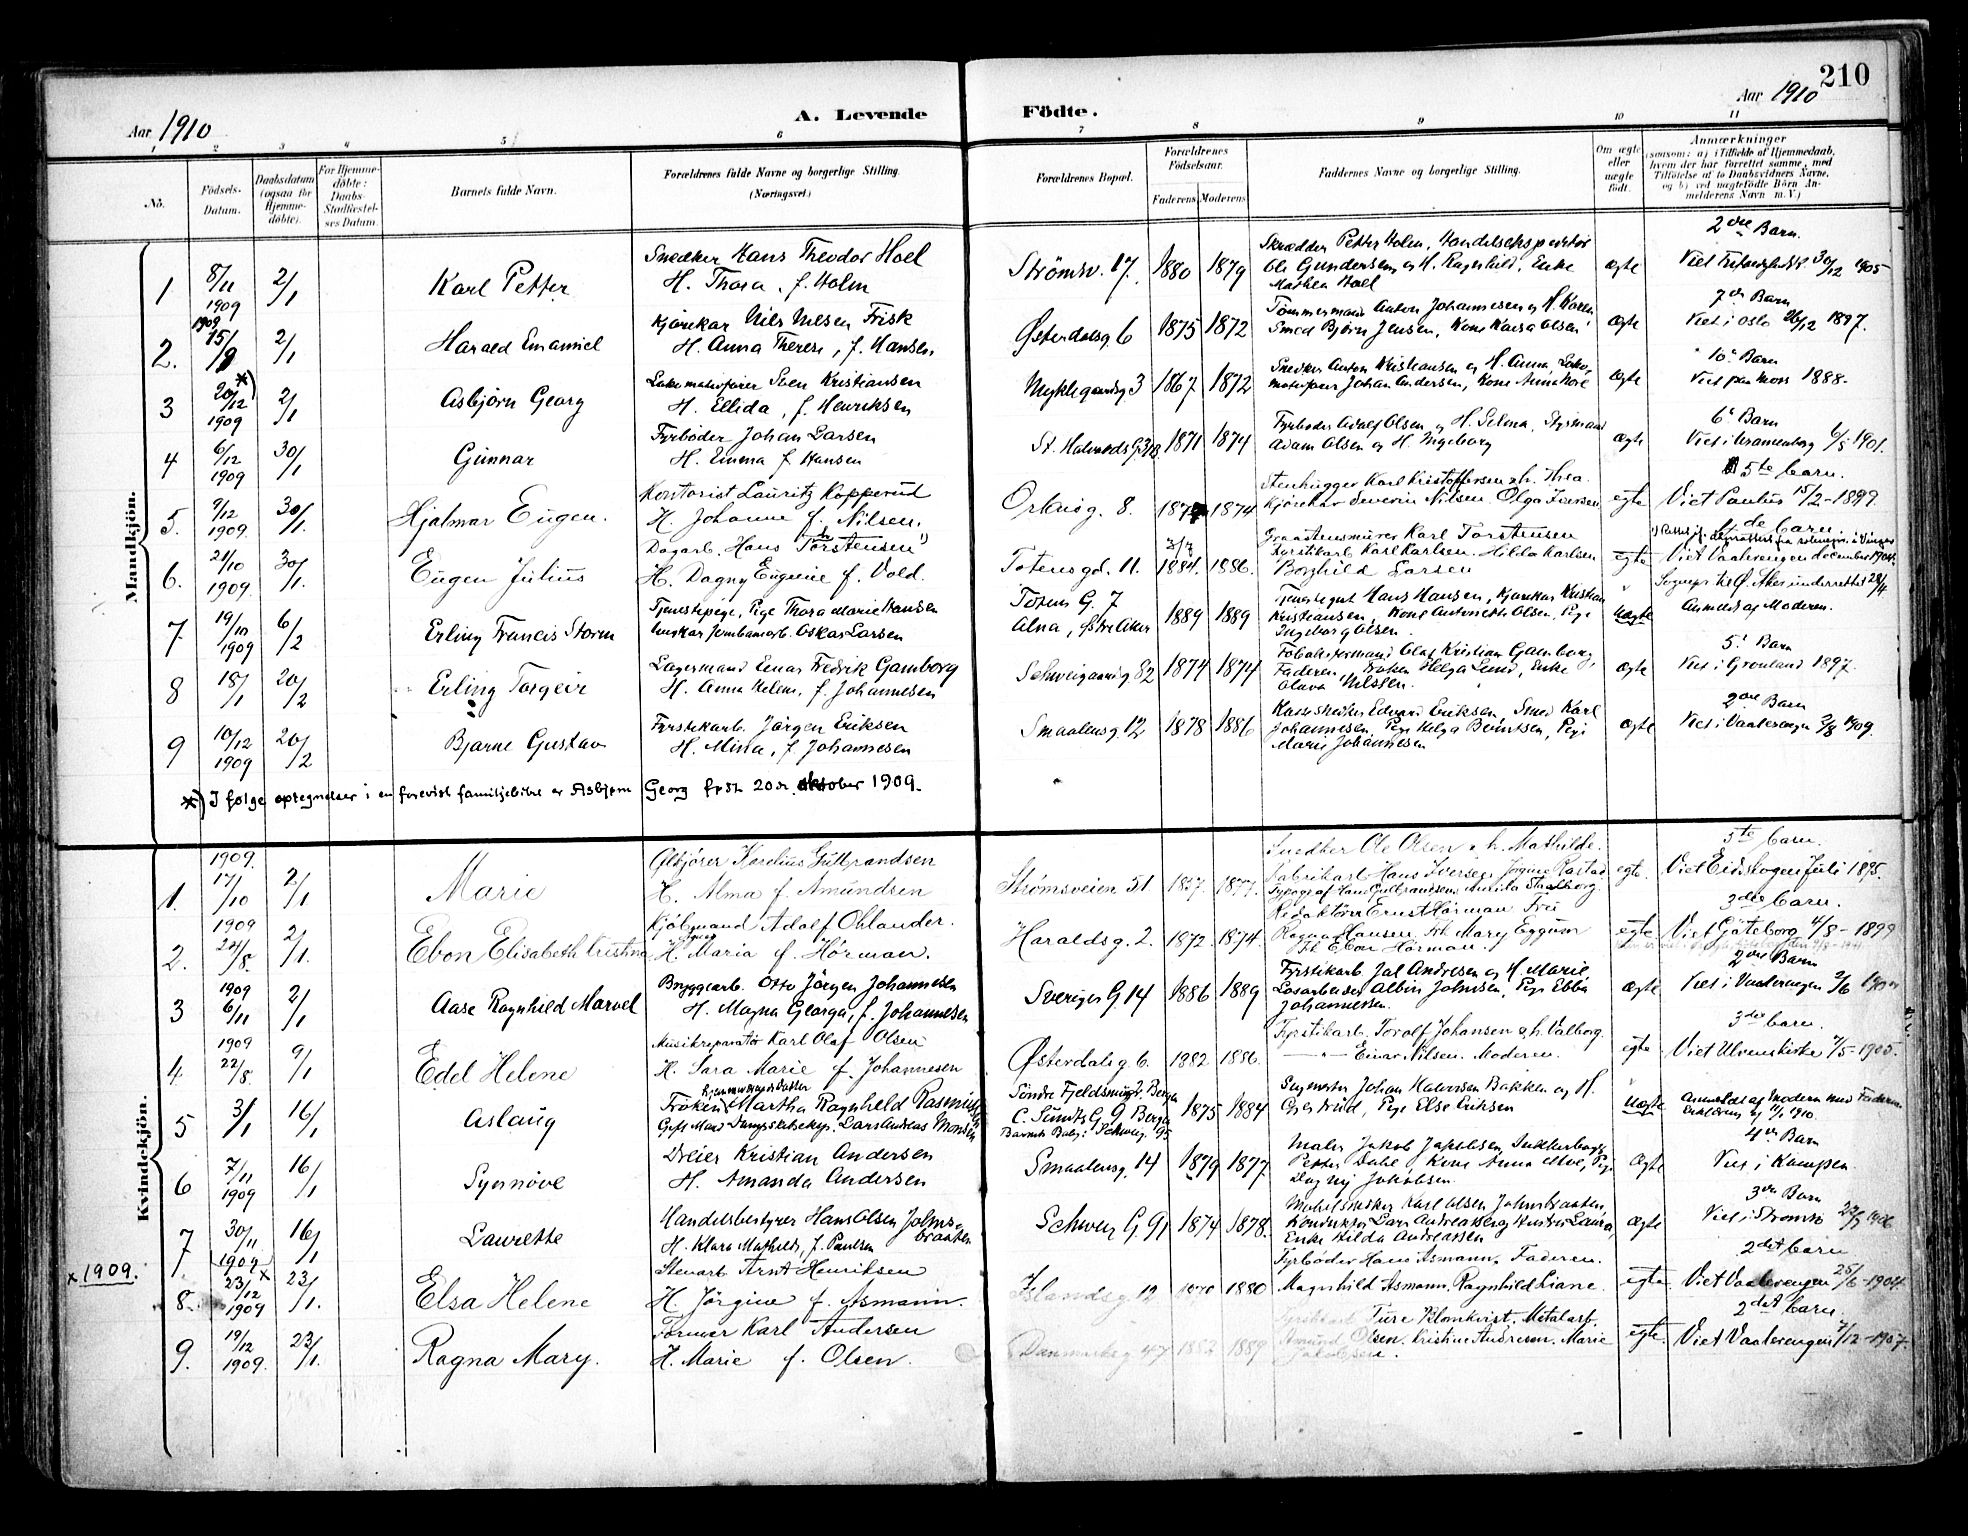 210
Aar 1910
A. Levende Födte.
Aar 1910
1 2 3 4 5 6 7 8 9 10 11
No.
Födsels-Datum.
Daabsdatum (ogsaa for Hjemmedøbte).
For Hjemmedöbte: Daabs-Stadfæstelses Datum.
Barnets fulde Navn.
Forældrenes fulde Navne og borgerlige Stilling. (Næringsvei.)
Forældrenes Bopæl.
Forældrenes Födselsaar.
Faderens Moderens
Faddernes Navne og borgerlige Stilling.
Om ægte eller uægte födt.
Anmærkninger
(saasom: a) i Tilfælde af Hjemmedaab, hvem der har forrettet samme, med Tilföielse af to Daabsvidners Navne, og b) ved uægtefödte Börn Anmelderens Navn m. V.)
Mandkjön.
1 8/11 1909 2/1 Karl Petter
Snedker Hans Theodor Hoel
H. Thora, f. Holm
Strömsv. 17. 1880 1879
Skrædder Petter Holm, Handelsekspeditör
Ole Gundersen og H. Ragnhild, Enke
Mathea Hoel
ægte
2den Barn.
30/12 1905
2. 1909 15/8 2/1 Harald Emanuel
Kjörekar Nils Nilsen Frisk
H. Anna Therese, f. Hansen
Østerdalsg. 6 1875 1872
Tömmermand Anton Johannesen og H. Karen
Smed Björn Jensen, Kone Kaisa Olsen
ægte
7de Barn
Viet i Oslo 26/12 1897.
3 20/12 *) 1909 2/1 Asbjörn Georg
Lokomotivförer Sven Kristiansen
H. Ellida, f. Henriksen
Nyklegaardsg 3 1867 1872
Snedker Anton Kristiansen og H. Anna, Loko-
motivförer Johan Andersen, Kone Anne Moe
ægte
10de Barn
Viet paa Moss 1888.
4 6/12 1909 30/1 Gunnar
Fyrböder Johan Larsen
H. Emma f. Hansen
St. Halvards G. 1871 1874
Fyrböder Adolf Olsen og H. Selma, Styrmand
Adam Olsen og H. Ingeborg
ægte
6te Barn
Viet i 1901.
5. 9/12 1909. 30/1. Hjalmar Eugen.
Kontorist Lauritz Kopperud
H. Johanne f. Nilsen.
Orknög. 8. 1874
Stenhugger Karl Kristoffersen & h. Thea.
Kjörekar Severin Nilsen. Olga Iversen
egte
5te barn.
Viet Paulus 15/2-1899.
6. 21/10 1909. 30/1. Eugen Julius
Dagarb. Hans Torstensen 1)
H. Dagny Eugenie f. Vold.
Totensgd. 11. 3/7 1884. 1886.
Graastensmurer Karl Torstensen
Fyrstikarb. Karl Karlsen. Hilda Karlsen
Borghild Larsen
egte
de barn
Viet Vaalerengen december 1904.
7 19/10 1909 6/2 Erling Francis Storm
Tjenestepige, Pige Thora Marie Hansen
Ungkar Jernbanearb. Oskar Larsen
Totens G. 7
Alna, Østre Aker 1889 1889
Tjenestegut Hans Hansen, Kjörekar Kristian
Kristiansen, Kone Antonette Olsen, Pige
Ingeborg Olsen.
Uægte
Anmeldt af Moderen.
8 18/1 20/2 Erling Torgeir
Lagermand Einar Fredrik Gamborg
H. Anna Helene, f. Johannesen
Schweigaardsg 82 1874 1874
Olaf Kristian Gamborg,
Faderen, Fröken Helga Lund, Enke
Olava Nilssen.
ægte
5te Barn
Viet i Grönland 1897.
9 10/12 1909 20/2 Bjarne Gustav
Fyrstikarb. Jörgen Eriksen
H. Mina, f. Johannesen
Smaalensg. 12 1878 1886
Edvard Eriksen, Smed Karl
Johannesen, Pige Helga Berntsen, Pige
Marie Johannesen
ægte
2den Barn
Viet i Vaalerengen 2/8 1909.
*) Ifölge optegnelser i en forevist familiebibel er Asbjørn Georg født 20de oktober 1909.
Kvindekjön.
1. 1909. 17/10 2/1 Marie
Ølkjörer Karelius Gulbrandsen
H. Alma f. Amundsen
Strömsveien 51. 1877.
Snedker Ole Olsen & h. Mathilde.
Fabrikarb. Hans Iversen, Jörgine Rastad
egte.
5te barn.
Viet Eidskogen Juli 1895.
2. 1909 2/1. Ebon Elisabeth Cristina
Kjöbmand Adolf Ohlander.
H. Maria f. Hörman.
Haraldsg. 2. 1872 1874
Redaktörer Ernst Hörman Fru
Ragna Hansen, Mary Eggum
Ebon Hörman.
egte
3die barn.
Viet Göteborg 4/8-1899
3 1909 6/11 2/1 Aase Ragnhild Marvel
Bryggearb. Otto Jörgen Johannesen
H. Magna Georga, f. Johannesen
Sveriges G. 14 1886 1889
Fyrstikarb. Jal Andresen og H. Marie,
Losarbeider Albin Johnsen, Pige Ebba
Johannessen.
ægte
2den Barn
Viet i Vaalerengen 2/6
4 1909 22/8 9/1 Edel Helene
Musikreparatör Karl Olaf Olsen
H. Sara Marie f. Johannesen
Østerdalsg. 6. 1882 1886.
Fyrstikarb. Torolf Johansen & h. Valborg.
— " — Einar Nilsen. Moderen.
egte
3die barn.
Viet Ulvenskirke 7/5-1905.
5 3/1 16/1 Aslaug
Fröken Martha Ragnhild Rasmussen
Gift Mand Dampskibseksp. Lars Andreas Monsen
Söndre Fjeldsmug 2, Bergen
C. Sundts G. 9 Bergen
95 1875 1884
Johan Halvorsen Bakken og H.
Gjertrud, Pige Else Eriksen
Uægte
Anmeldt af Moderen med Faderens
Erklæring af 11/1 1910.
6 7/11 1909 16/1 Synnöve
Dreier Kristian Andersen
H. Amanda Andersen
Smaalensg. 14 1879 1877.
Maler Jakob Jakobsen, Sukkerbager
Petter Dahl, Kone Anna Moe, Pige
Dagny Jakobsen
Ægte
4de Barn
Viet i Kampen.
7 30/11 1909 16/1 Laurette
Handelsbestyrer Hans Olsen Johnsbraaten
H. Klara Mathilde, f. Paulsen
Schweig G. 91 1874 1878.
Möbelsnedker Karl Olsen Johnsbraaten,
Konduktör Lars Andreasberg Hustru Laura,
Enke Hilda Andreassen
ægte
3die Barn
Viet i Strömsö
x 1909.
8. 23/12 x 1909 23/1. Elsa Helene
Stenarb. Arnt Henriksen
H. Jörgine f. Asmann.
Islandsg 12 1880
Fyrböder Hans Asmann. Faderen.
Magnhild Asmann. Ragnhild Liane.
egte
2det barn
Viet Vaalerengen 25/6-1904.
9. 19/12 1909. 23/1. Ragna Mary.
Former Karl Andersen
H. Marie f. Olsen.
Danmarksg 47 1882 1889
Ture Blomkvist. Metalarb.
Amund Olsen. Kristine Andresen. Marie
Jakobsen.
egte.
2det barn.
Viet Vaalerengen 7/12-1907.